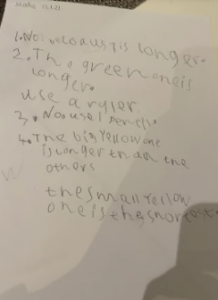 longer.
2. The green one is
longer.
use a ruler.
3. No use
4. The big yellow one
is longer than the
others
the small yellow
one is the shortest